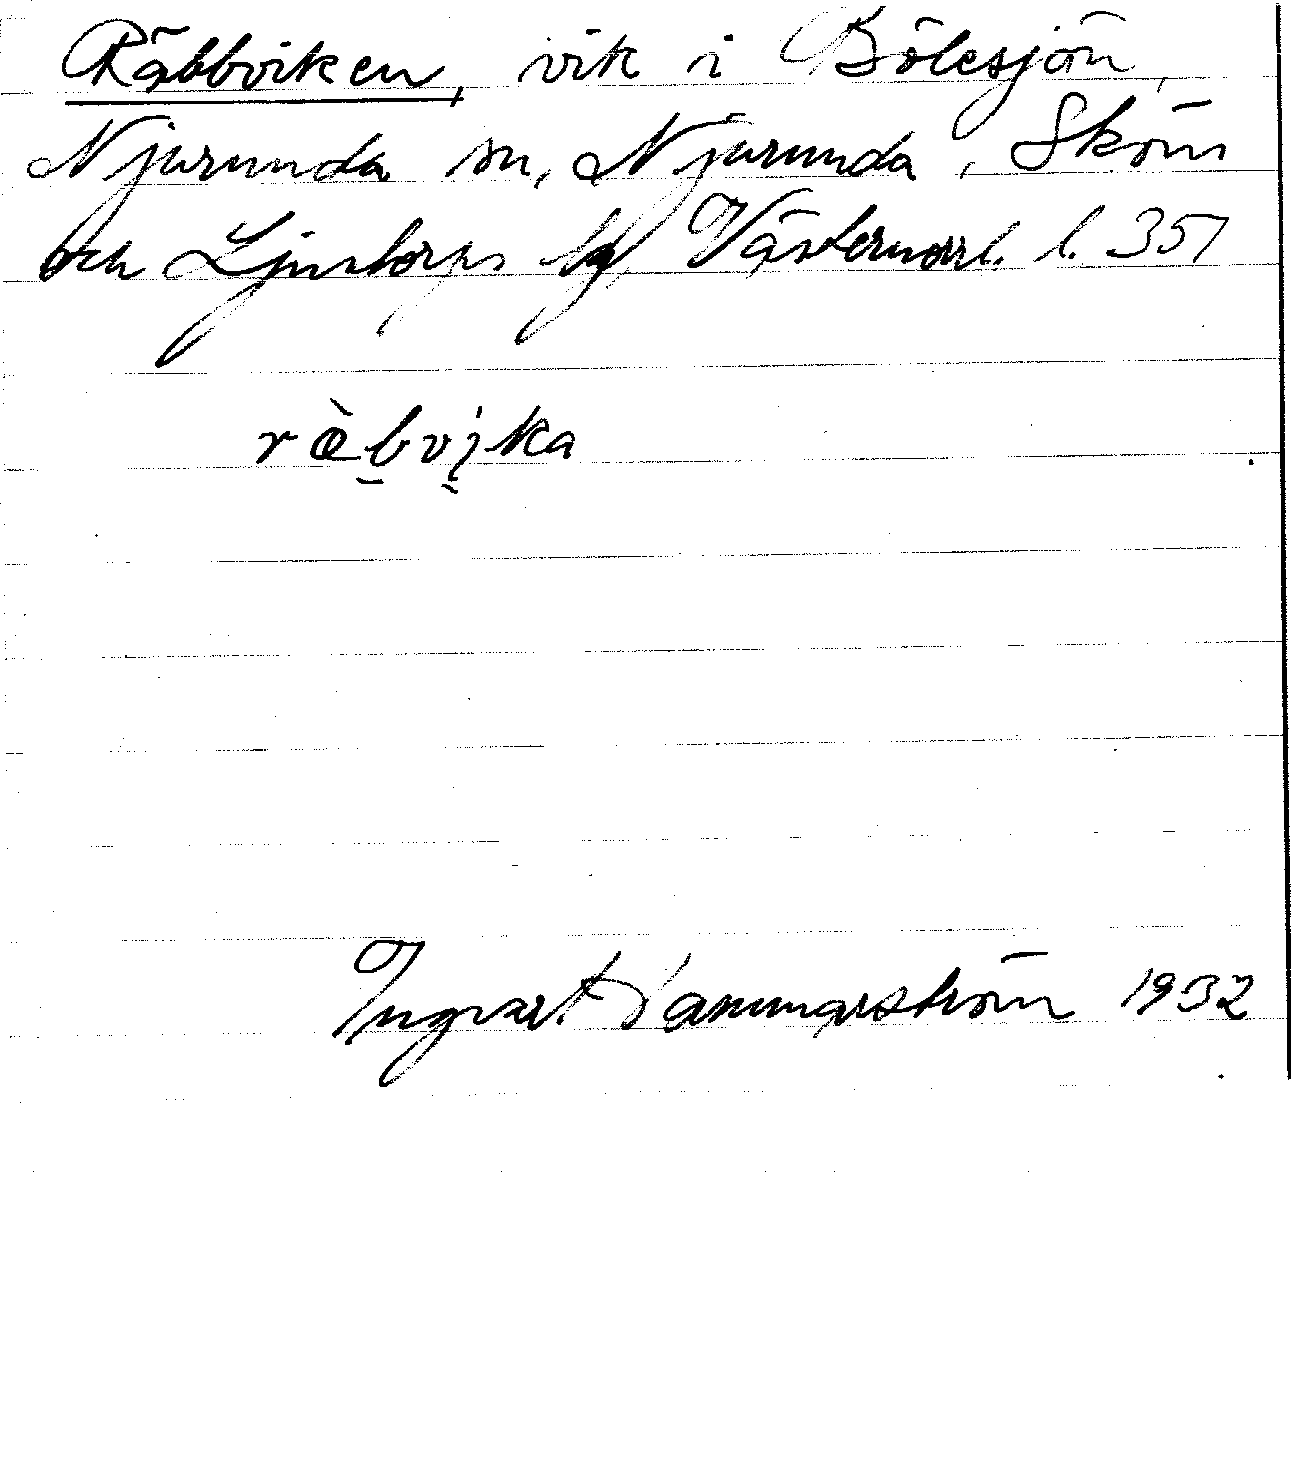 Räbbviken, vik i Bölesjön,
Njurunda sn, Njurunda, Sköns
och Ljustorps tg, Västernorrl. l. 351
ræ̀bvika
Ingvart Hammarström 1932